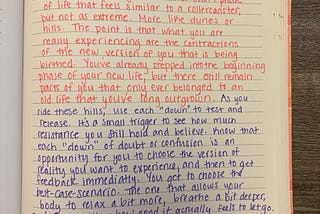 of life that feels similar to a rollercoaster,
but not as extreme. More like dunes or
hills. The point is that what you are
really experiencing are the contractions
of the new version of you that is being
birthed. You've already stepped into the beginning
phase of your new life, but there still remain
parts of you that only ever belonged to an
old life that you've long outgrown. As you
ride these hills, use each "down" to test and
release. It's a small trigger to see how much
resistance you still hold and believe. Know that
each "down" of doubt or confusion is an
opportunity for you to choose the version of
reality you want to experience, and then to get
feedback immediatly. You get to choose the
best-case-scenario. The one that allows your
body to relax a bit more, breathe a bit deeper,
how good it actually feels to let go.